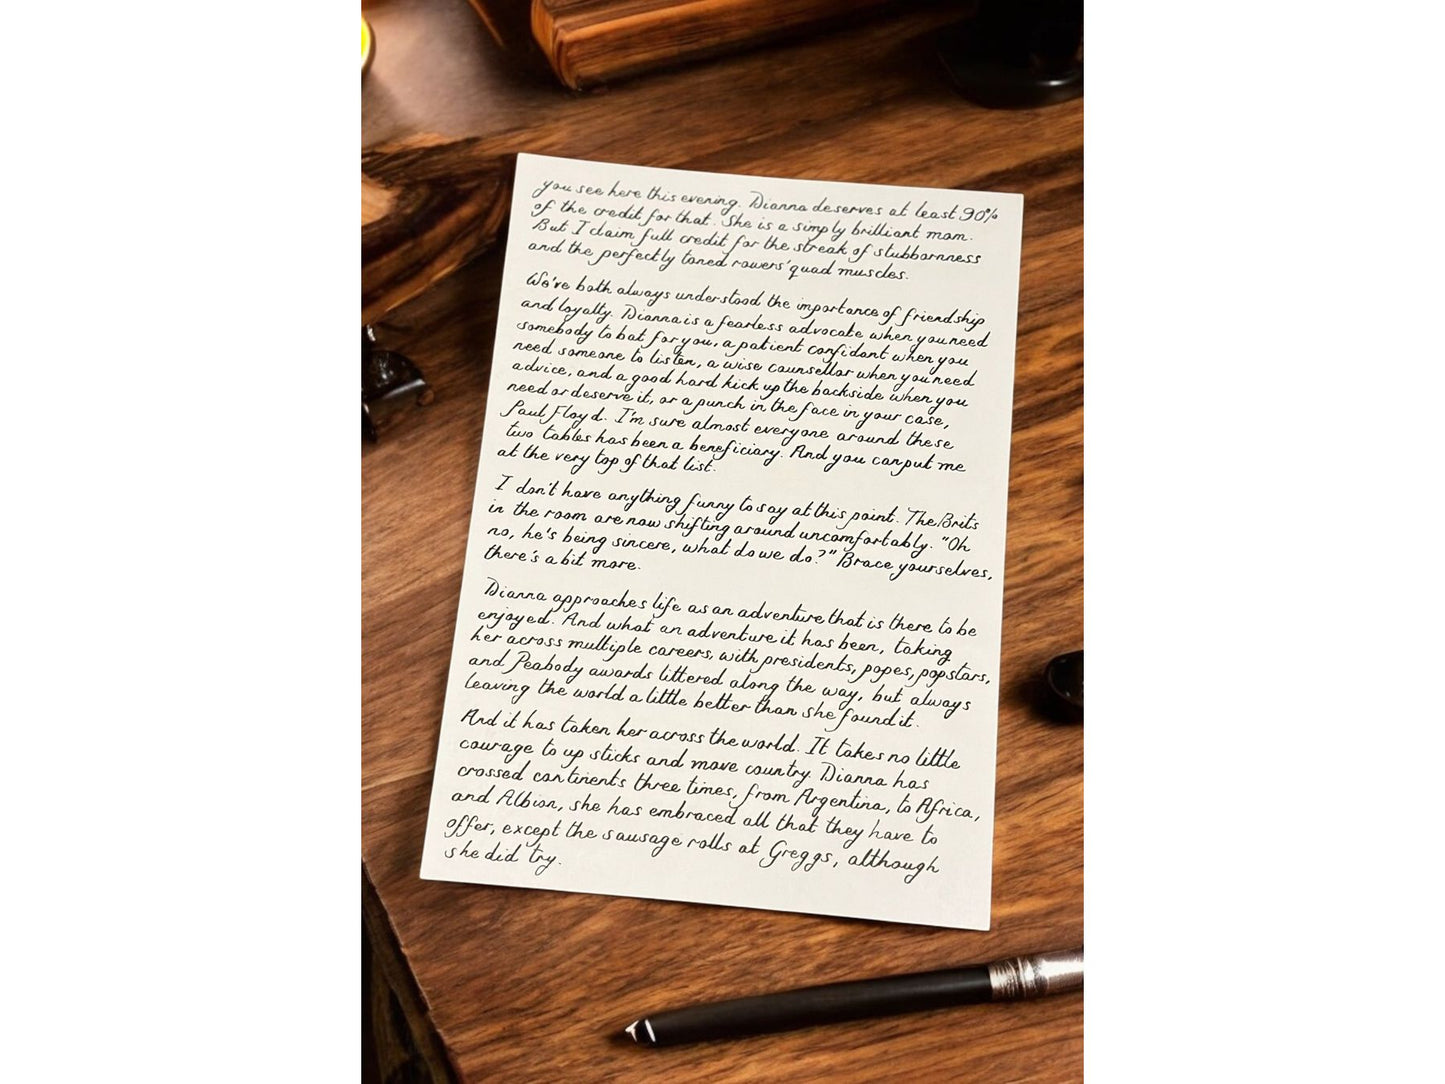 you see here this evening. Dianna deserves at least 90%
of the credit for that. She is a simply brilliant mom.
But I claim full credit for the streak of stubbornness
and the perfectly toned rowers' quad muscles.
We've both always understood the importance of friendship
and loyalty. Dianna is a fearless advocate when you need
somebody to bat for you, a patient confidant when you
need someone to listen, a wise counsellor when you need
advice, and a good hard kick up the backside when you
need or deserve it, or a punch in the face in your case,
Paul Floyd. I'm sure almost everyone around these
two tables has been a beneficiary. And you can put me
at the very top of that list.
I don't have anything funny to say at this point. The Brits
in the room are now shifting around uncomfortably. "Oh
no, he's being sincere, what do we do?" Brace yourselves,
there's a bit more.
Dianna approaches life as an adventure that is there to be
enjoyed. And what an adventure it has been, taking
her across multiple careers, with presidents, popes, popstars,
and Peabody awards littered along the way, but always
leaving the world a little better than she found it.
And it has taken her across the world. It takes no little
courage to up sticks and move country. Dianna has
crossed continents three times, from Argentina, to Africa,
and Albion, she has embraced all that they have to
offer, except the sausage rolls at Greggs, although
she did try.